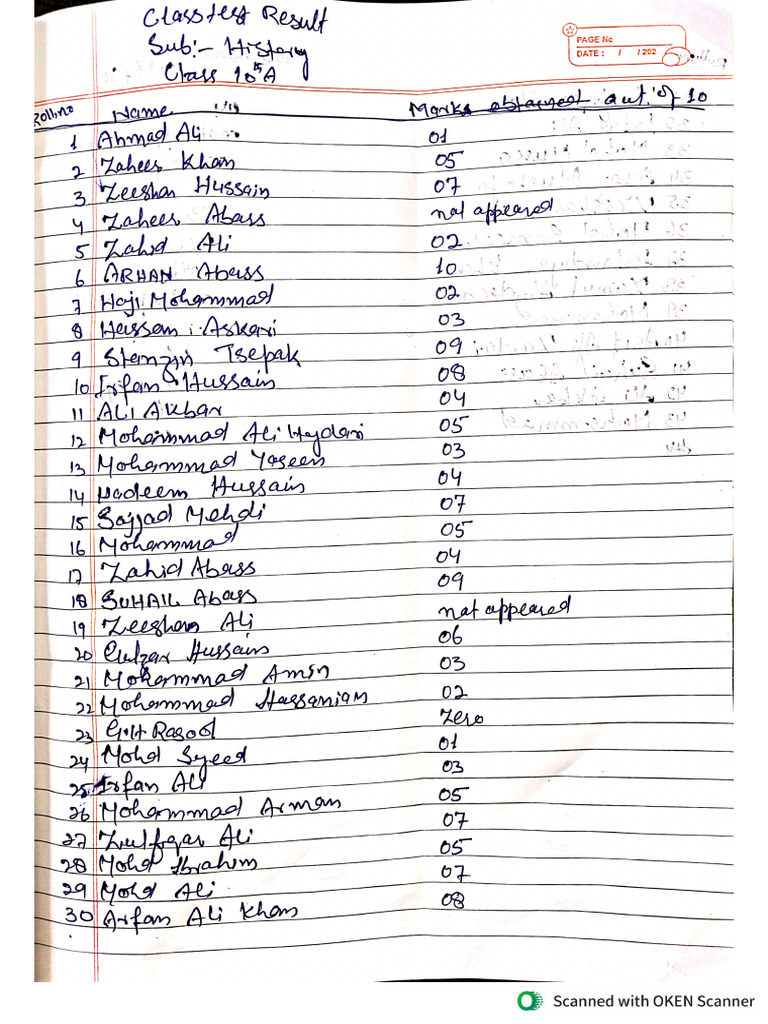 Class test Result
Sub:- History
Class 10th A
PAGE No
DATE: / /202
Roll.no Name Marks obtained out of 10
1 Ahmad Ali 01
2 Zaheer Khan 05
3 Zeeshan Hussain 07
4 Zaheer Abass not appeared
5 Zahid Ali 02
6 ARHAN Abass 10
7 Haji Mohammad 02
8 Hassan Askari 03
9 Stanzin Tsepak 09
10 Irfan Hussain 08
11 ALI AKbar 04
12 Mohammad Ali Hydari 05
13 Mohammad Yaseen 03
14 Nadeem Hussain 04
15 Sajjad Mehdi 07
16 Mohammad 05
17 Zahid Abass 04
18 SUHAIL Abass 09
19 Zeeshan Ali not appeared
20 Gulzar Hussain 06
21 Mohammad Amin 03
22 Mohammad Hassanian 02
23 G.H Rasool Zero
24 Mohd Syeed 01
25 Irfan Ali 03
26 Mohammad Arman 05
27 Zulfqar Ali 07
28 Mohd Ibrahim 05
29 Mohd Ali 07
30 Arfan Ali Khan 08
Scanned with OKEN Scanner